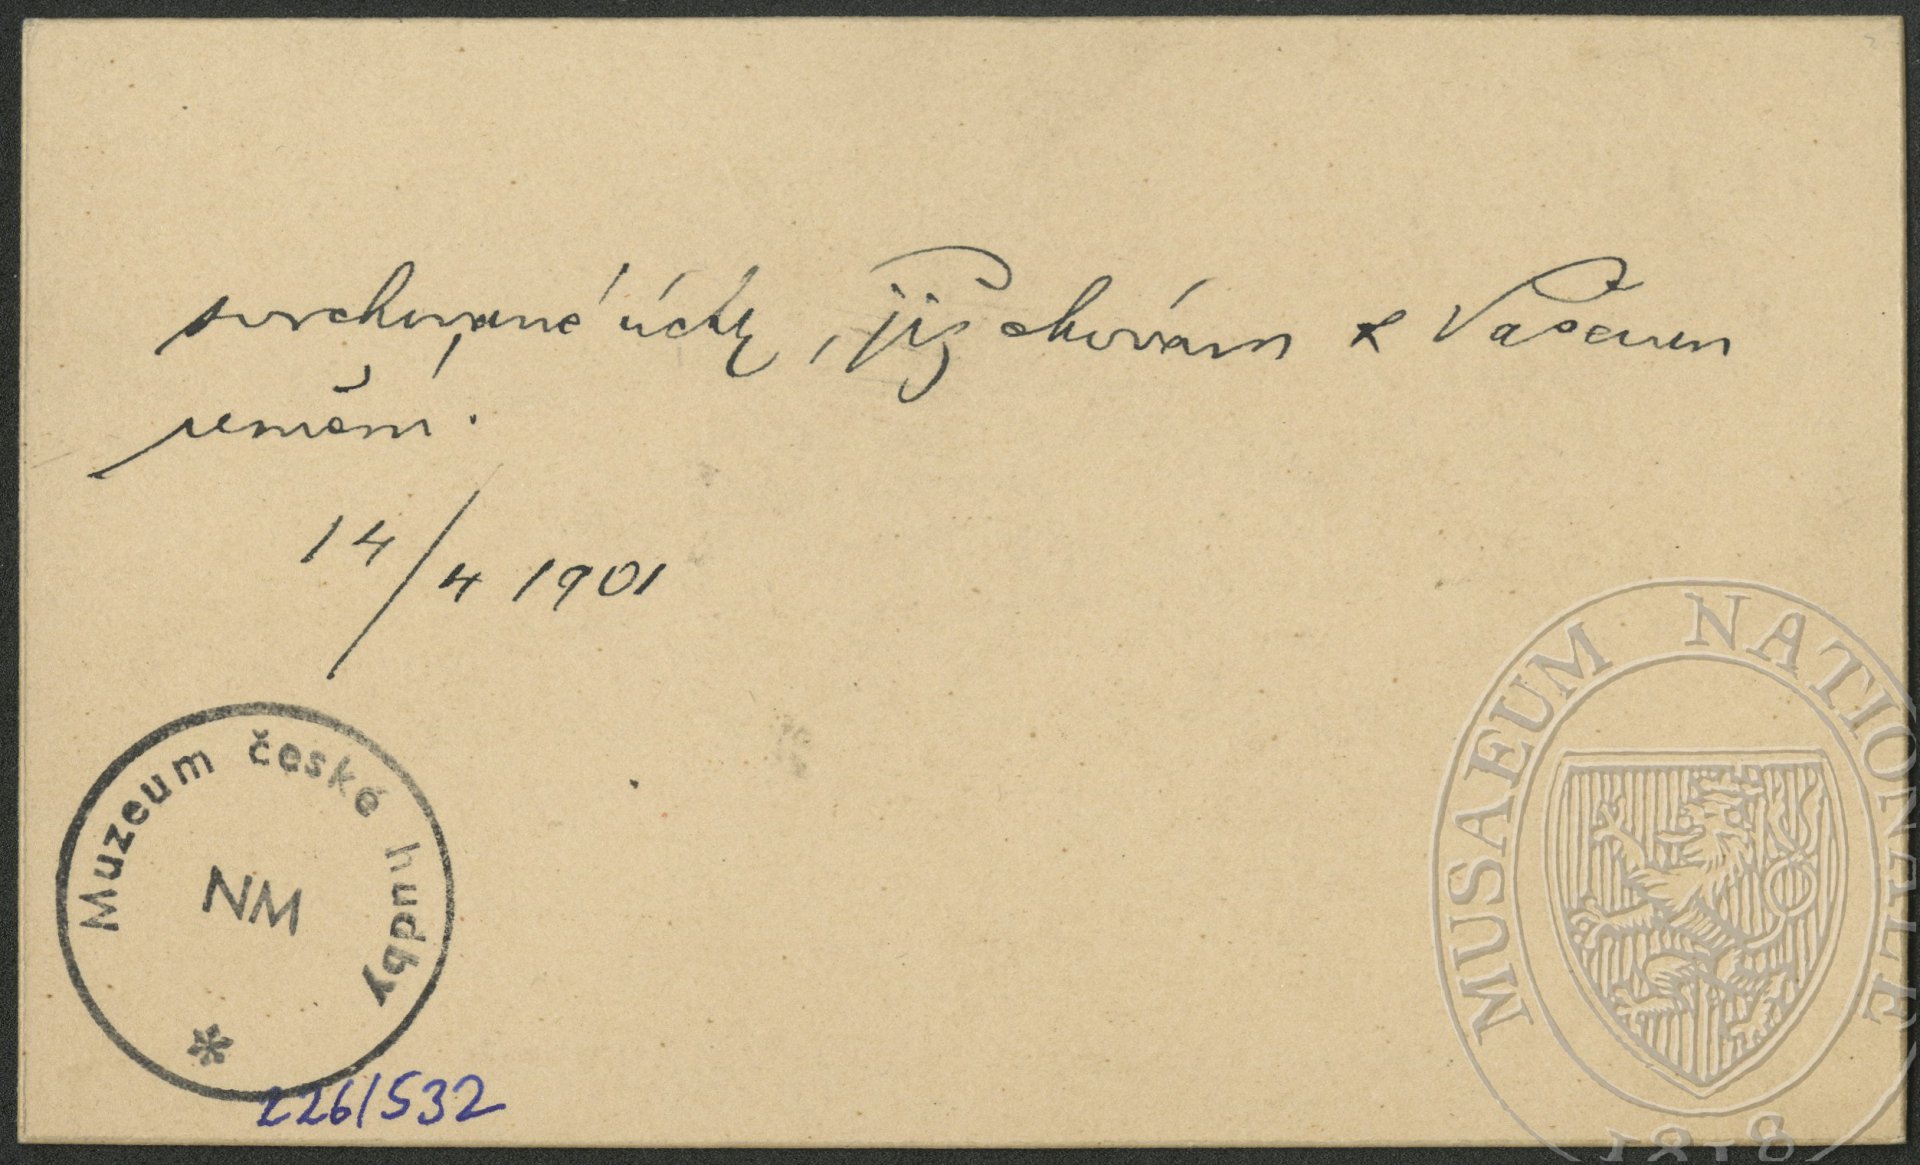 svrchované úcty, jíž chovám k Vašemu
umění.
14/4 1901
Muzeum české hudby
NM
226/532
MUSAEUM NATIONALE
1818